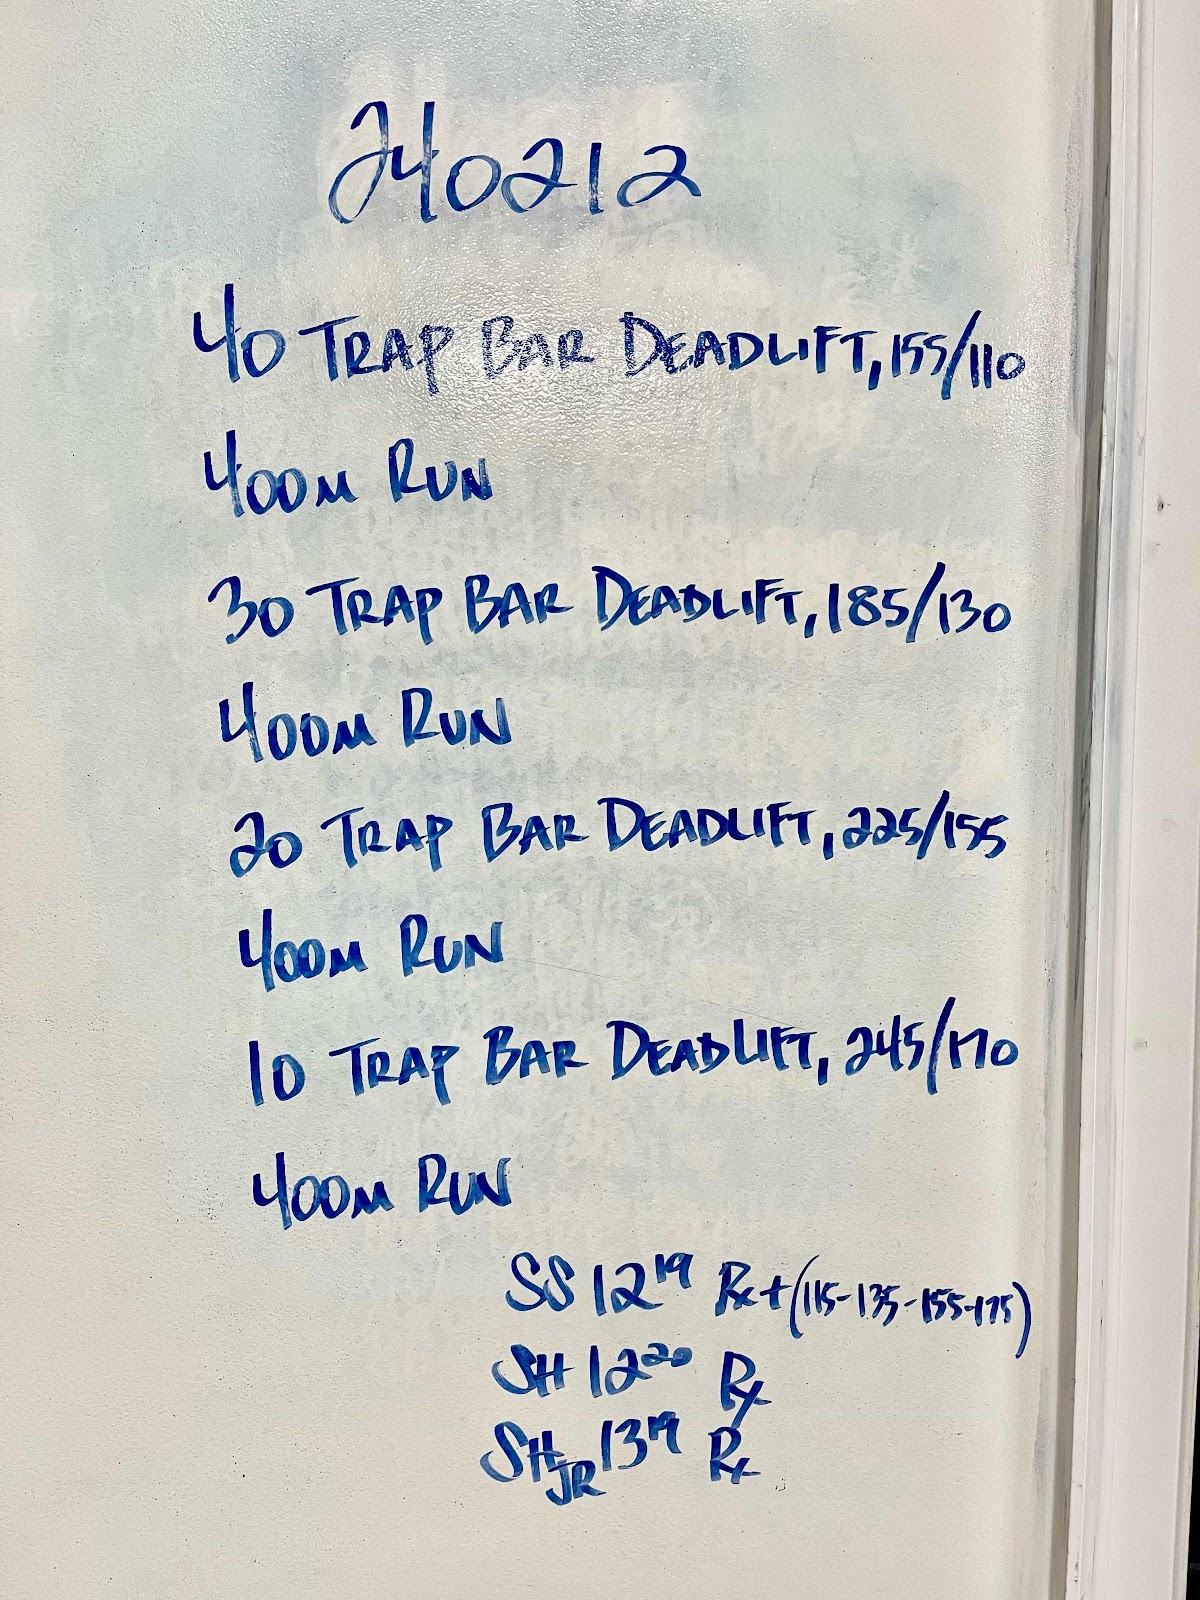 240212
40 TRAP BAR DEADLIFT, 155/110
400M RUN
30 TRAP BAR DEADLIFT, 185/130
400M RUN
20 TRAP BAR DEADLIFT, 225/155
400M RUN
10 TRAP BAR DEADLIFT, 245/170
400M RUN
SS 12 19 Rx+ (115-135-155-175)
SH 12 20 Rx
SH JR 13 19 Rx